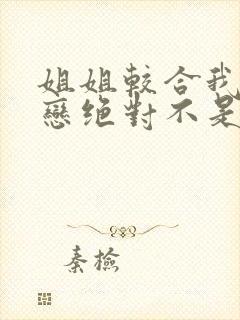 姐姐較合我
戀绝對不是
秦檢